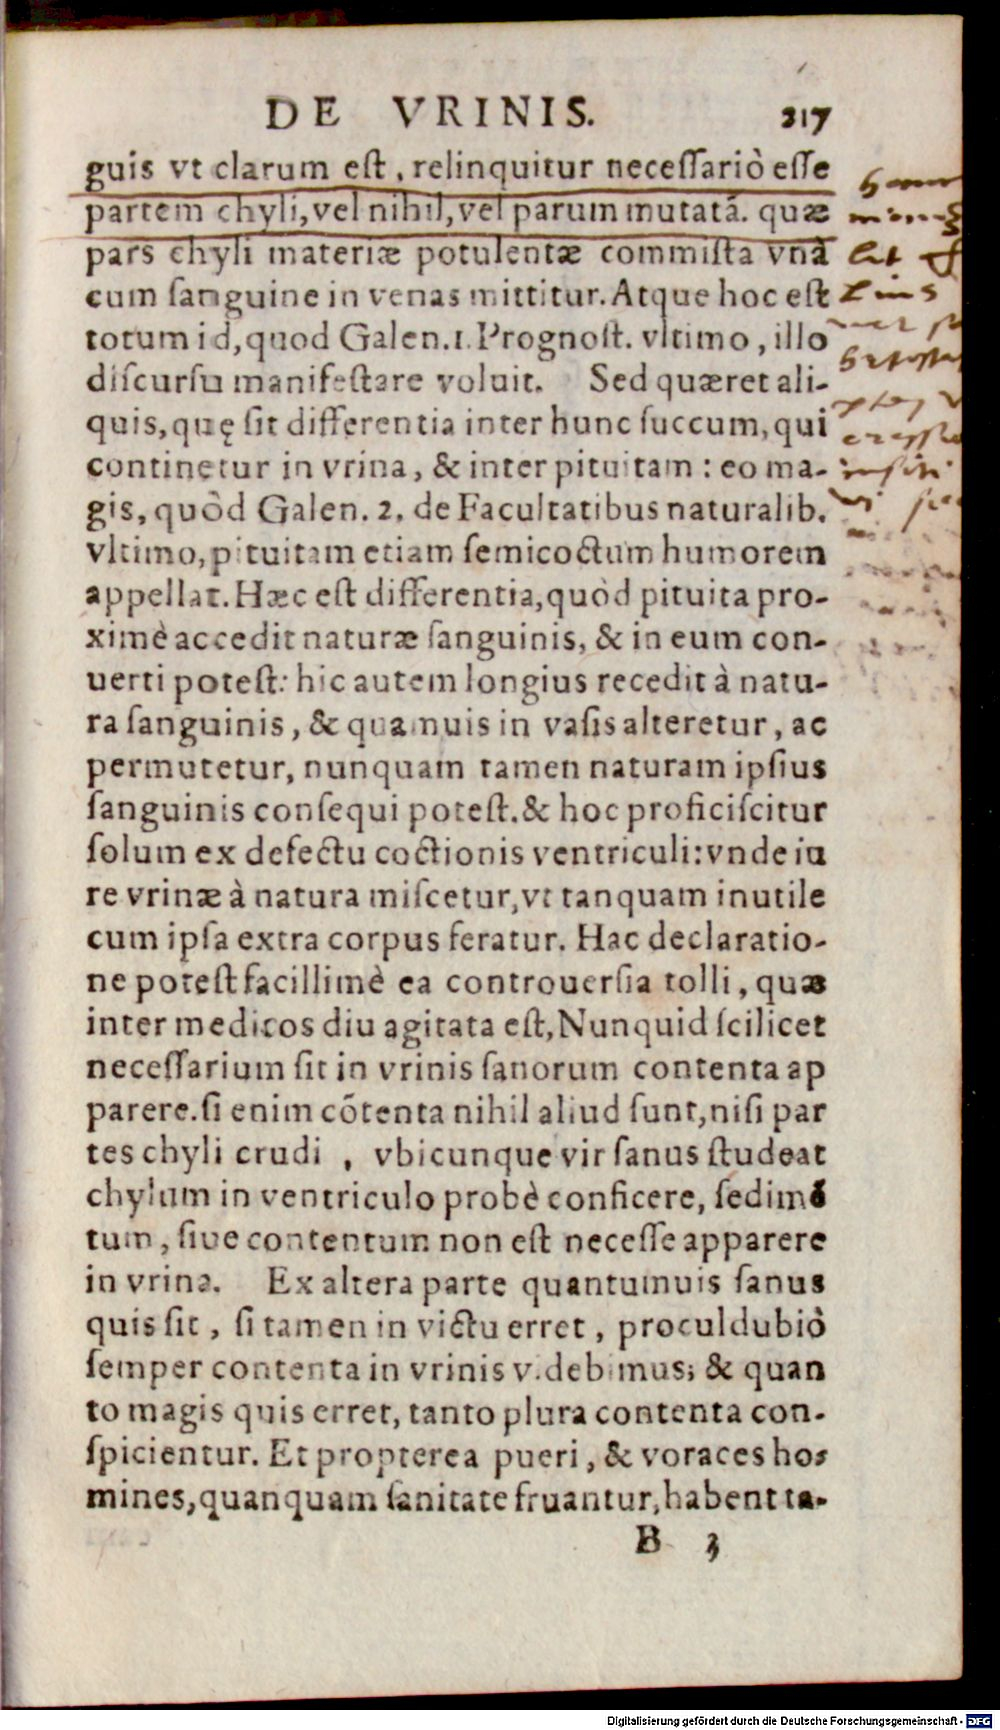 DE VRINIS. 217
guis vt clarum est, relinquitur necessariò esse
partem chyli, vel nihil, vel parum mutatã. quæ
pars chyli materiæ potulentæ commista vnà
cum sanguine in venas mittitur. Atque hoc est
totum id, quod Galen. 1. Prognost. vltimo, illo
discursu manifestare voluit. Sed quæret ali-
quis, quę sit differentia inter hunc succum, qui
continetur in vrina, & inter pituitam: eo ma-
gis, quòd Galen. 2. de Facultatibus naturalib.
vltimo, pituitam etiam semicoctum humorem
appellat. Hæc est differentia, quòd pituita pro-
ximè accedit naturæ sanguinis, & in eum con-
uerti potest: hic autem longius recedit à natu-
ra sanguinis, & quamuis in vasis alteretur, ac
permutetur, nunquam tamen naturam ipsius
sanguinis consequi potest. & hoc proficiscitur
solum ex defectu coctionis ventriculi: vnde iu
re vrinæ à natura miscetur, vt tanquam inutile
cum ipsa extra corpus feratur. Hac declaratio-
ne potest facillimè ea controuersia tolli, quæ
inter medicos diu agitata est, Nunquid scilicet
necessarium sit in vrinis sanorum contenta ap
parere. si enim cõtenta nihil aliud sunt, nisi par
tes chyli crudi, vbicunque vir sanus studeat
chylum in ventriculo probè conficere, sedimẽ
tum, siue contentum non est necesse apparere
in vrina. Ex altera parte quantumuis sanus
quis sit, si tamen in victu erret, proculdubiò
semper contenta in vrinis videbimus; & quan
to magis quis erret, tanto plura contenta con-
spicientur. Et propterea pueri, & voraces ho-
mines, quanquam sanitate fruantur, habent ta-
B 3
Digitalisierung gefördert durch die Deutsche Forschungsgemeinschaft - DFG